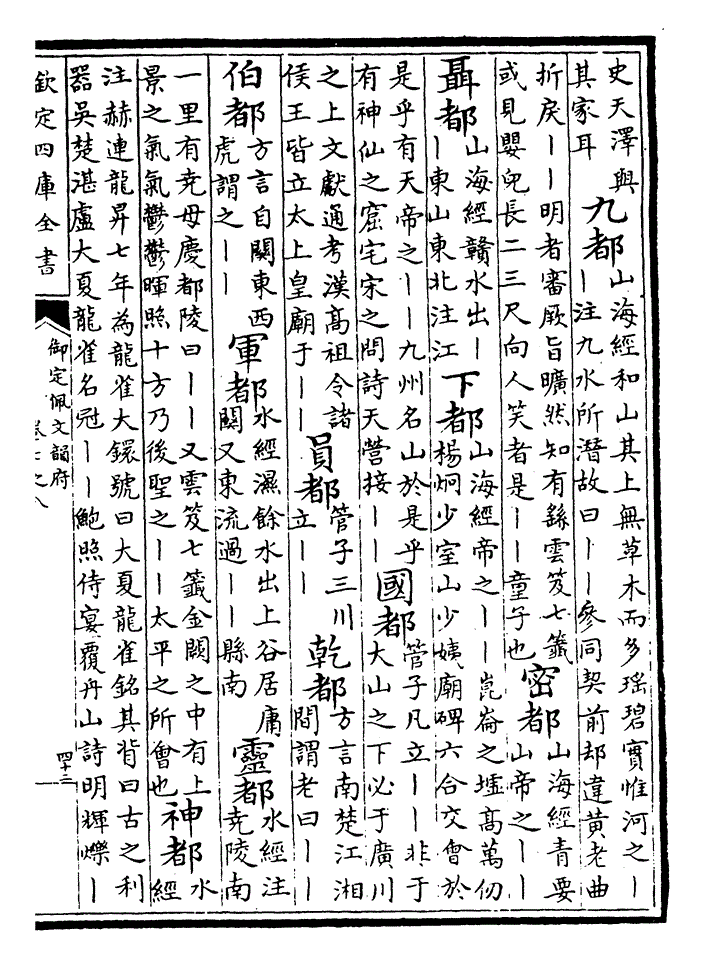 史天澤與其家耳 九都 山海經和山其上無草木而多瑤碧實惟河之｜｜注九水所潛故曰｜｜參同契前却違黃老曲
折戾｜｜明者審厥旨曠然知有繇雲笈七籤或見嬰兒長二三尺向人笑者是｜｜童子也 密都 山海經青要山帝之｜｜
聶都 山海經贛水出｜｜東山東北注江 下都 山海經帝之｜｜崑崙之墟高萬仞楊炯少室山少姨廟碑六合交會於
是乎有天帝之｜｜九州名山於是乎有神仙之窟宅宋之問詩天營接｜｜ 國都 管子凡立｜｜非于大山之下必于廣川
之上文獻通考漢高祖令諸侯王皆立太上皇廟于｜｜ 員都 管子三川立｜｜ 乾都 方言南楚江湘間謂老曰｜｜
伯都 方言自關東西虎謂之｜｜ 軍都 水經濕餘水出上谷居庸關又東流過｜｜縣南 靈都 水經注堯陵南
一里有堯母慶都陵曰｜｜又雲笈七籤金闕之中有上景之氣氣鬱鬱暉照十方乃後聖之｜｜太平之所會也 神都 水經
注赫連龍昇七年為龍雀大鐶號曰大夏龍雀銘其背曰古之利器吳楚湛盧大夏龍雀名冠｜｜鮑照侍宴覆丹山詩明輝爍｜
欽定四庫全書
御定佩文韻府
卷七之八
四十三